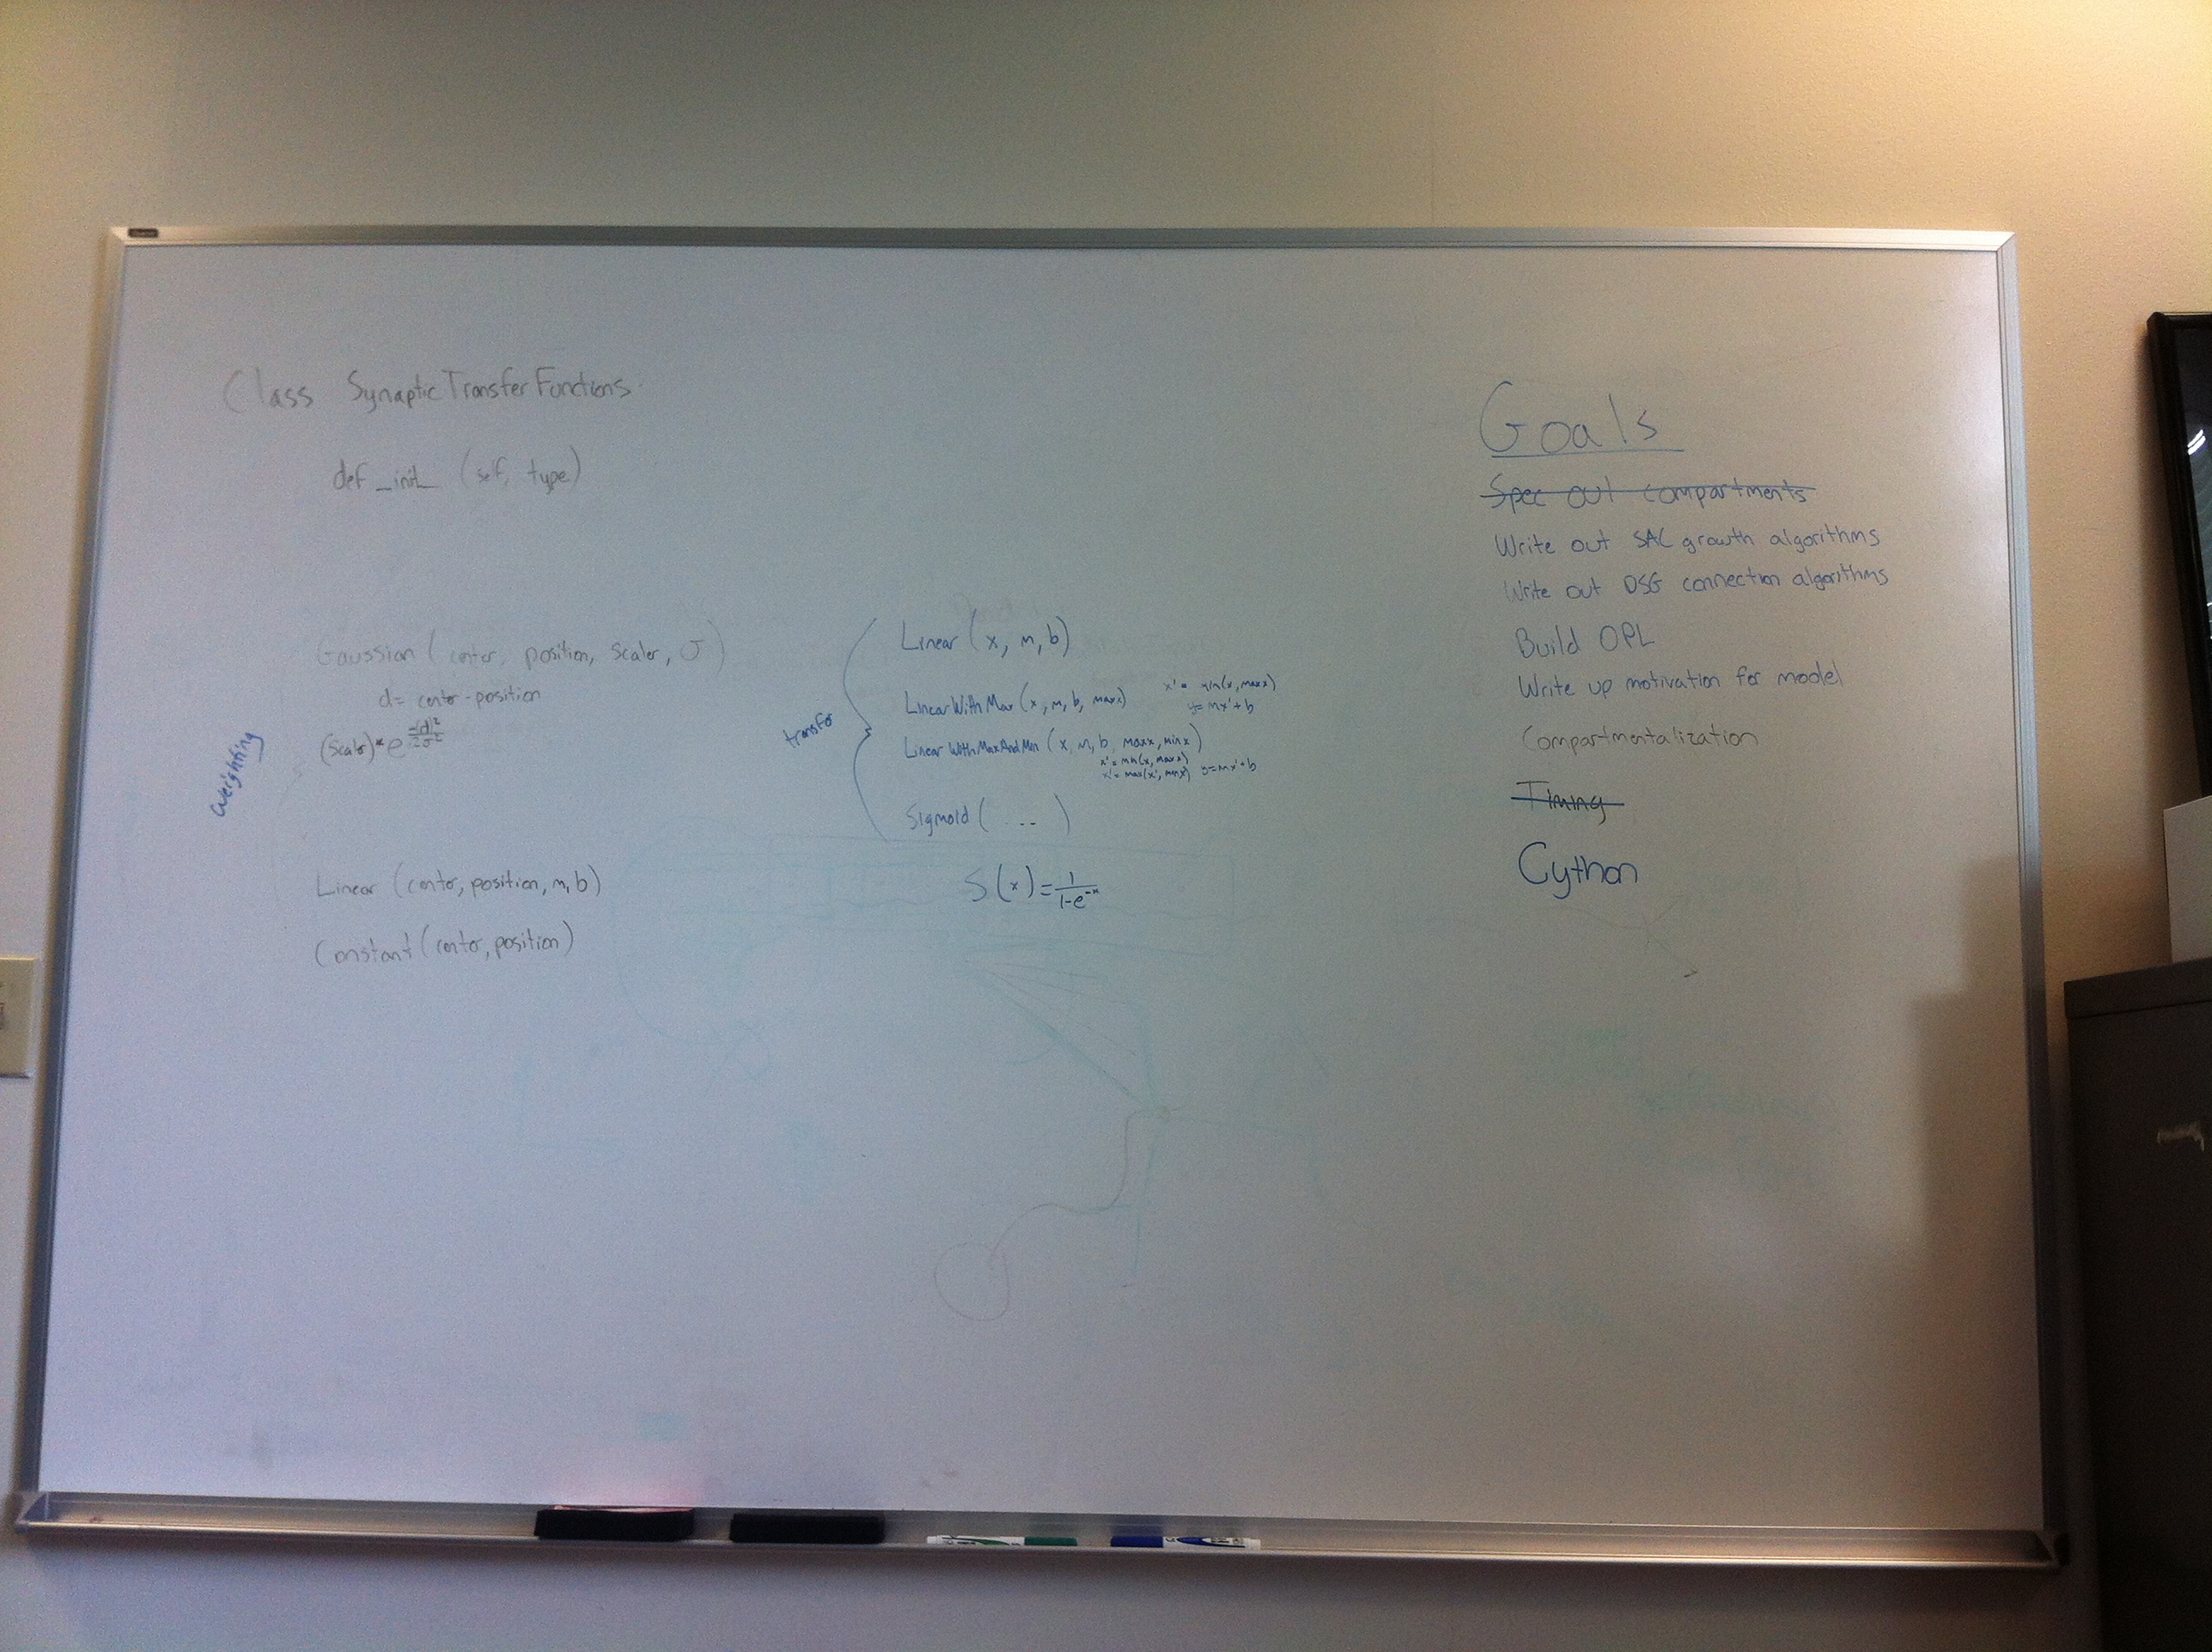 Class SynapticTransferFunctions
def _init_ (self, type)
Gaussian (center, position, scaler, σ)
d = center - position
(scaler) * e^(-(d)²/2σ²)
weighting
Linear (center, position, m, b)
Constant (center, position)
transfer
Linear (x, m, b)
LinearWithMax (x, m, b, maxx) x' = min(x, maxx)
y = mx' + b
LinearWithMaxAndMin (x, m, b, maxx, minx)
x' = min(x, maxx)
x' = max(x', minx) y = mx' + b
Sigmoid ( ... )
S(x) = 1/(1-e^-x)
Goals
Spec out compartments
Write out SAC growth algorithms
Write out DSG connection algorithms
Build OPL
Write up motivation for model
Compartmentalization
Timing
Cython